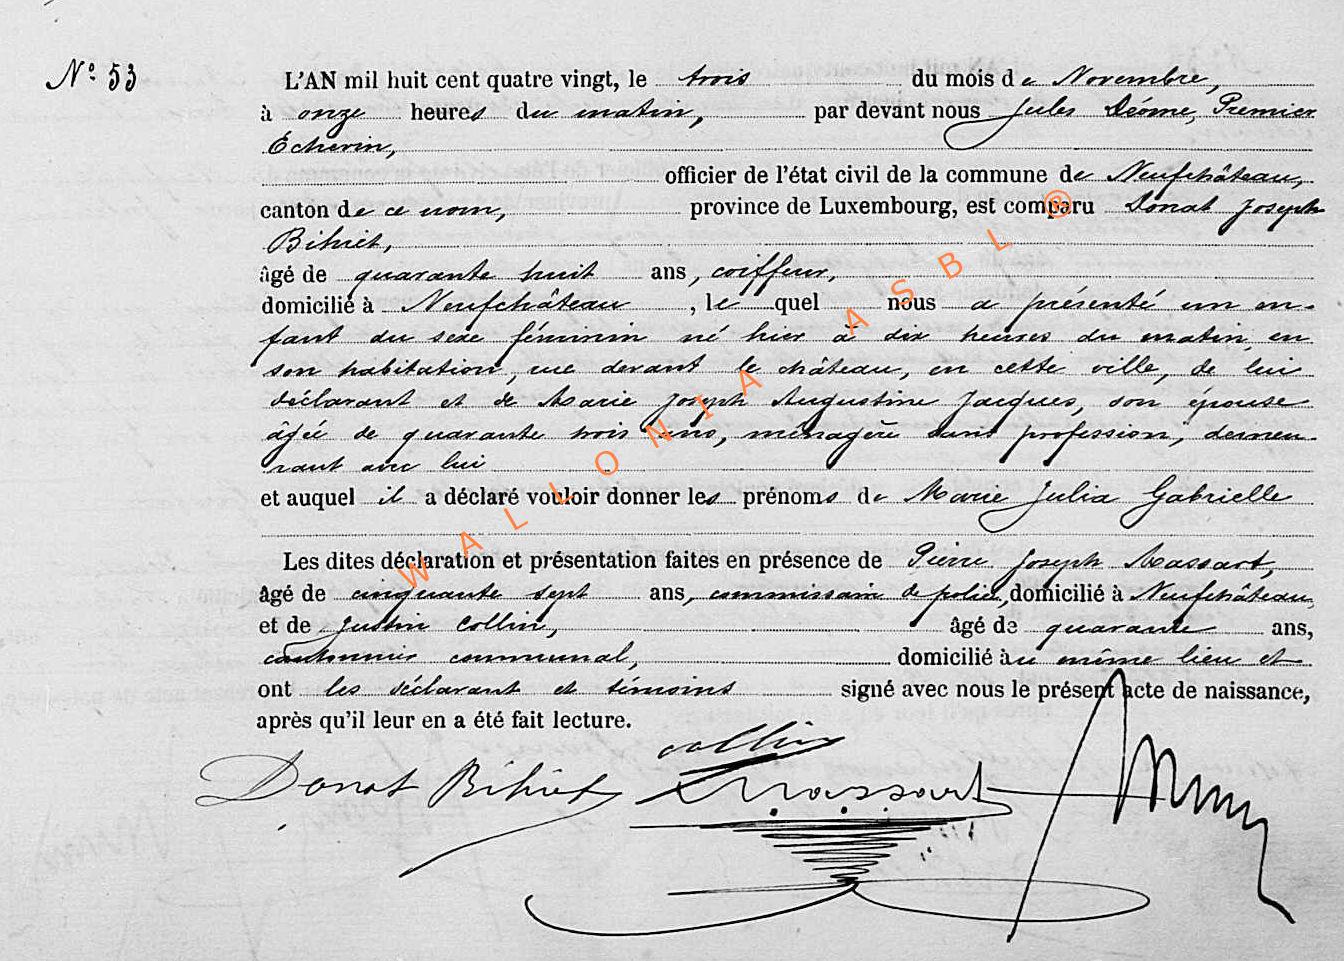 N° 53
L'AN mil huit cent quatre vingt, le trois du mois de Novembre,
à onze heures du matin, par devant nous Jules Déome, Premier
Echevin,
officier de l'état civil de la commune de Neufchâteau,
canton de ce nom, province de Luxembourg, est comparu Donat Joseph
Bihiet,
âgé de quarante huit ans, coiffeur,
domicilié à Neufchâteau, lequel nous a présenté un en-
fant du sexe féminin né hier à dix heures du matin, en
son habitation, rue devant le château, en cette ville, de lui
déclarant et de Marie Joseph Augustine Jacques, son épouse
âgée de quarante trois ans, ménagère sans profession, demeu-
rant avec lui
et auquel il a déclaré vouloir donner les prénoms de Marie Julia Gabrielle
Les dites déclaration et présentation faites en présence de Pierre Joseph Massart,
âgé de cinquante sept ans, commissaire de police, domicilié à Neufchâteau,
et de Justin Collin, âgé de quarante ans,
cantonnier communal, domicilié au même lieu et
ont les déclarant et témoins signé avec nous le présent acte de naissance,
après qu'il leur en a été fait lecture.
Collin
Donat Bihiet Massart
WALLONIA ASBL ®